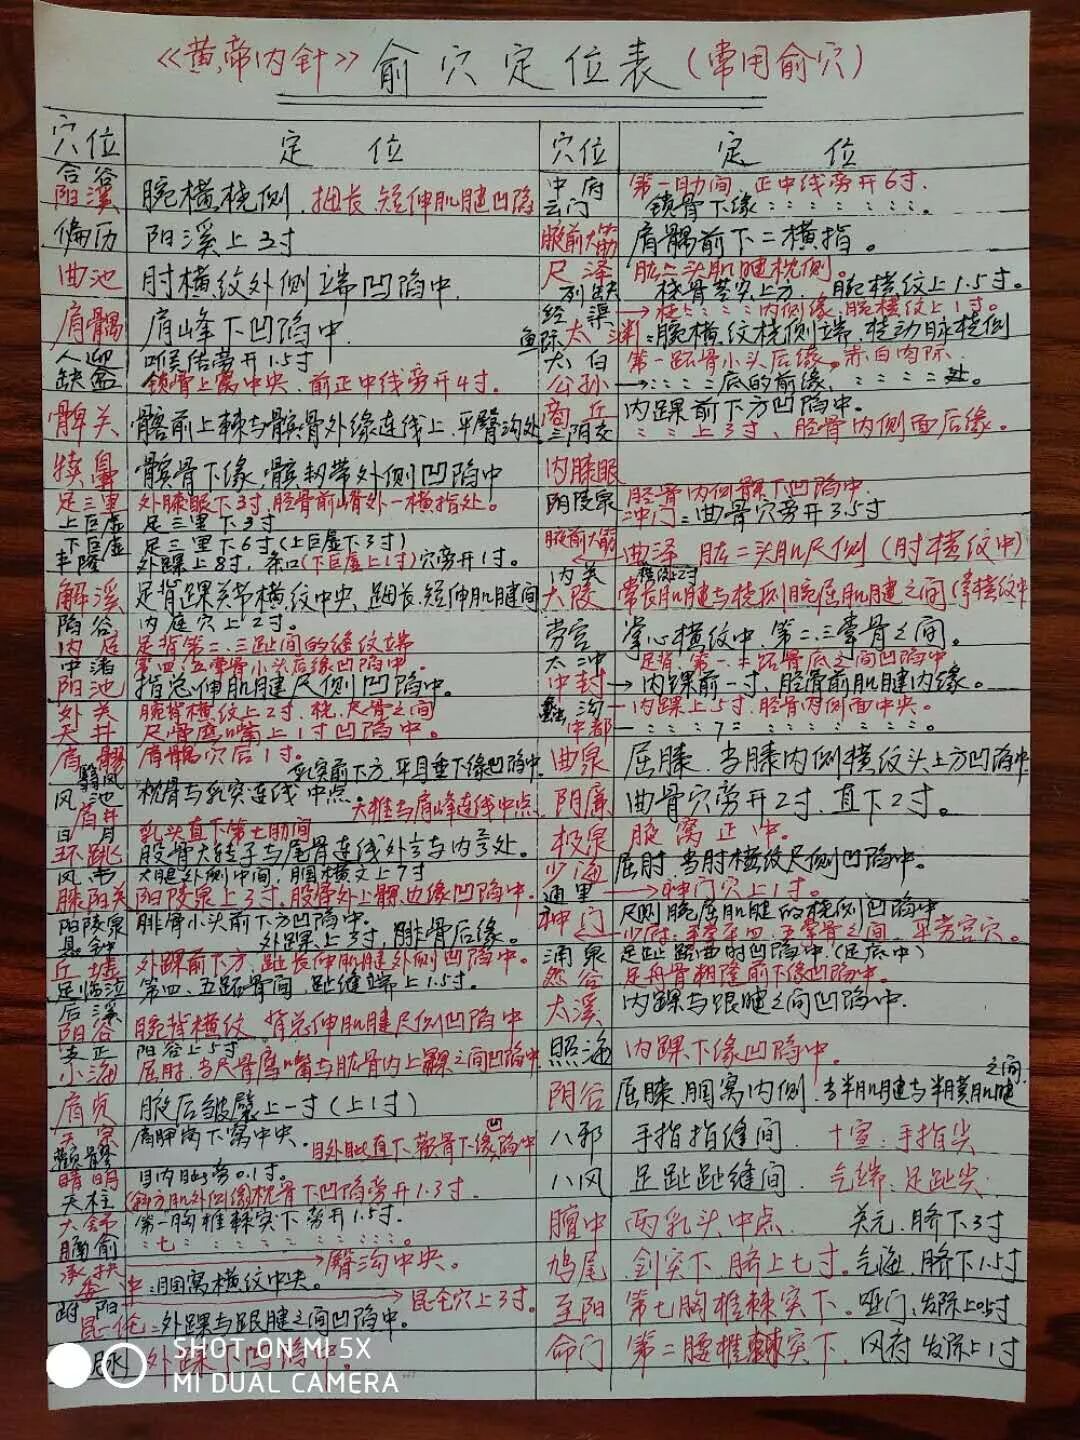 《黄帝内针》俞穴定位表(常用俞穴)
穴位 定位
合谷
阳溪 腕横桡侧.拇长.短伸肌腱凹陷
偏历 阳溪上3寸
曲池 肘横纹外侧端凹陷中.
肩髃 肩峰下凹陷中.
人迎 喉结旁开1.5寸
缺盆 锁骨上窝中央.前正中线旁开4寸。
髀关 髂前上棘与髌骨外缘连线上.平臀沟处
犊鼻 髌骨下缘.髌韧带外侧凹陷中
足三里 外膝眼下3寸,胫骨前嵴外一横指处。
上巨虚 足三里下3寸
下巨虚 足三里下6寸(上巨虚下3寸)
丰隆 外踝上8寸,条口(下巨虚上1寸)穴旁开1寸。
解溪 足背踝关节横纹中央.𧿹长.短伸肌腱间
陷谷 内庭穴上2寸。
内庭 足背第二、三趾间的缝纹端
中渚 第四、五掌骨小头后缘凹陷中。
阳池 指总伸肌腱尺侧凹陷中。
外关 腕背横纹上2寸.桡.尺骨之间
天井 尺骨鹰嘴上1寸凹陷中。
肩髎 肩髃穴后1寸。
翳风 乳突前下方.平耳垂下缘凹陷中.
风池 枕骨与乳突连线中点。
肩井 大椎与肩峰连线中点
日月 乳头直下第七肋间
环跳 股骨大转子与尾骨连线外⅓与内⅔处。
风市 大腿外侧中间,腘横文上7寸
膝阳关 阳陵泉上3寸,股骨外上髁边缘凹陷中。
阳陵泉 腓骨小头前下方凹陷中。
悬钟 外踝上3寸,腓骨后缘。
丘墟 外踝前下方.趾长伸肌腱外侧凹陷中。
足临泣 第四、五跖骨间.趾缝端上1.5寸。
后溪
阳谷 腕背横纹.指总伸肌腱尺侧凹陷中
支正 阳谷上5寸
小海 屈肘.当尺骨鹰嘴与肱骨内上髁之间凹陷中
肩贞 腋后皱襞上一寸(上1寸)
天宗 肩胛岗下窝中央.
颧髎 目外眦直下.颧骨下缘凹陷中
睛明 目内眦旁0.1寸。
天柱 (斜方肌外侧缘枕骨下凹陷旁开1.3寸
大杼 第一胸椎棘突下旁开1.5寸.
膈俞 ::七::::::::。
承扶 → 臀沟中央。
委中:腘窝横纹中央。
跗阳 → 昆仑穴上3寸。
昆仑:外踝与跟腱之间凹陷中。
脉 外踝下凹陷中。
穴位 定位
中府 第一肋间.正中线旁开6寸.
云门 锁骨下缘:::::::。
腋前大筋 肩髃前下二横指。
尺泽 肱二头肌腱桡侧。
列缺 桡骨茎突上方.腕横纹上1.5寸。
经渠 → 桡::::内侧缘,腕横纹上1寸。
鱼际 太渊:腕横纹桡侧端.桡动脉桡侧
太白 第一跖骨小头后缘。赤白肉际.
公孙 → ::::底的前缘.::::处。
商丘 内踝前下方凹陷中。
三阴交 ::上3寸.胫骨内侧面后缘。
内膝眼
阴陵泉 胫骨内侧髁下凹陷中.
冲门:曲骨穴旁开3.5寸
腋前大筋
← 曲泽 肱二头肌尺侧(肘横纹中)
内关 横纹上2寸
大陵 掌长肌腱与桡侧腕屈肌腱之间(掌横纹中
劳宫 掌心横纹中.第二.三掌骨之间。
太冲 足背.第一.二跖骨底之间凹陷中
中封 → 内踝前一寸.胫骨前肌腱内缘。
蠡沟 → 内踝上5寸.胫骨内侧面中央。
中都 → :::7:::::。
曲泉 屈膝.当膝内侧横纹头上方凹陷中.
阴廉 曲骨穴旁开2寸.直下2寸。
极泉 腋窝正中。
少海 屈肘.当肘横纹尺侧凹陷中。
通里 → 神门穴上1寸。
神门 尺侧腕屈肌腱的桡侧凹陷中
← 少府:手掌第四、五掌骨之间.平劳宫穴。
涌泉 足趾跖曲时凹陷中(足底中)
然谷 足舟骨粗隆前下缘凹陷中。
太溪 内踝与跟腱之间凹陷中.
照海 内踝下缘凹陷中.
阴谷 屈膝.腘窝内侧.当半肌腱与半膜肌腱之间.
八邪 手指指缝间. 十宣:手指尖
八风 足趾趾缝间 气端:足趾尖.
膻中 两乳头中点. 关元.脐下3寸
鸠尾 剑突下.脐上七寸。气海.脐下1.5寸
至阳 第七胸椎棘突下.哑门.发际上0.5寸
命门 第二腰椎棘突下.风府 发际上1寸
SHOT ON MI 5X
MI DUAL CAMERA